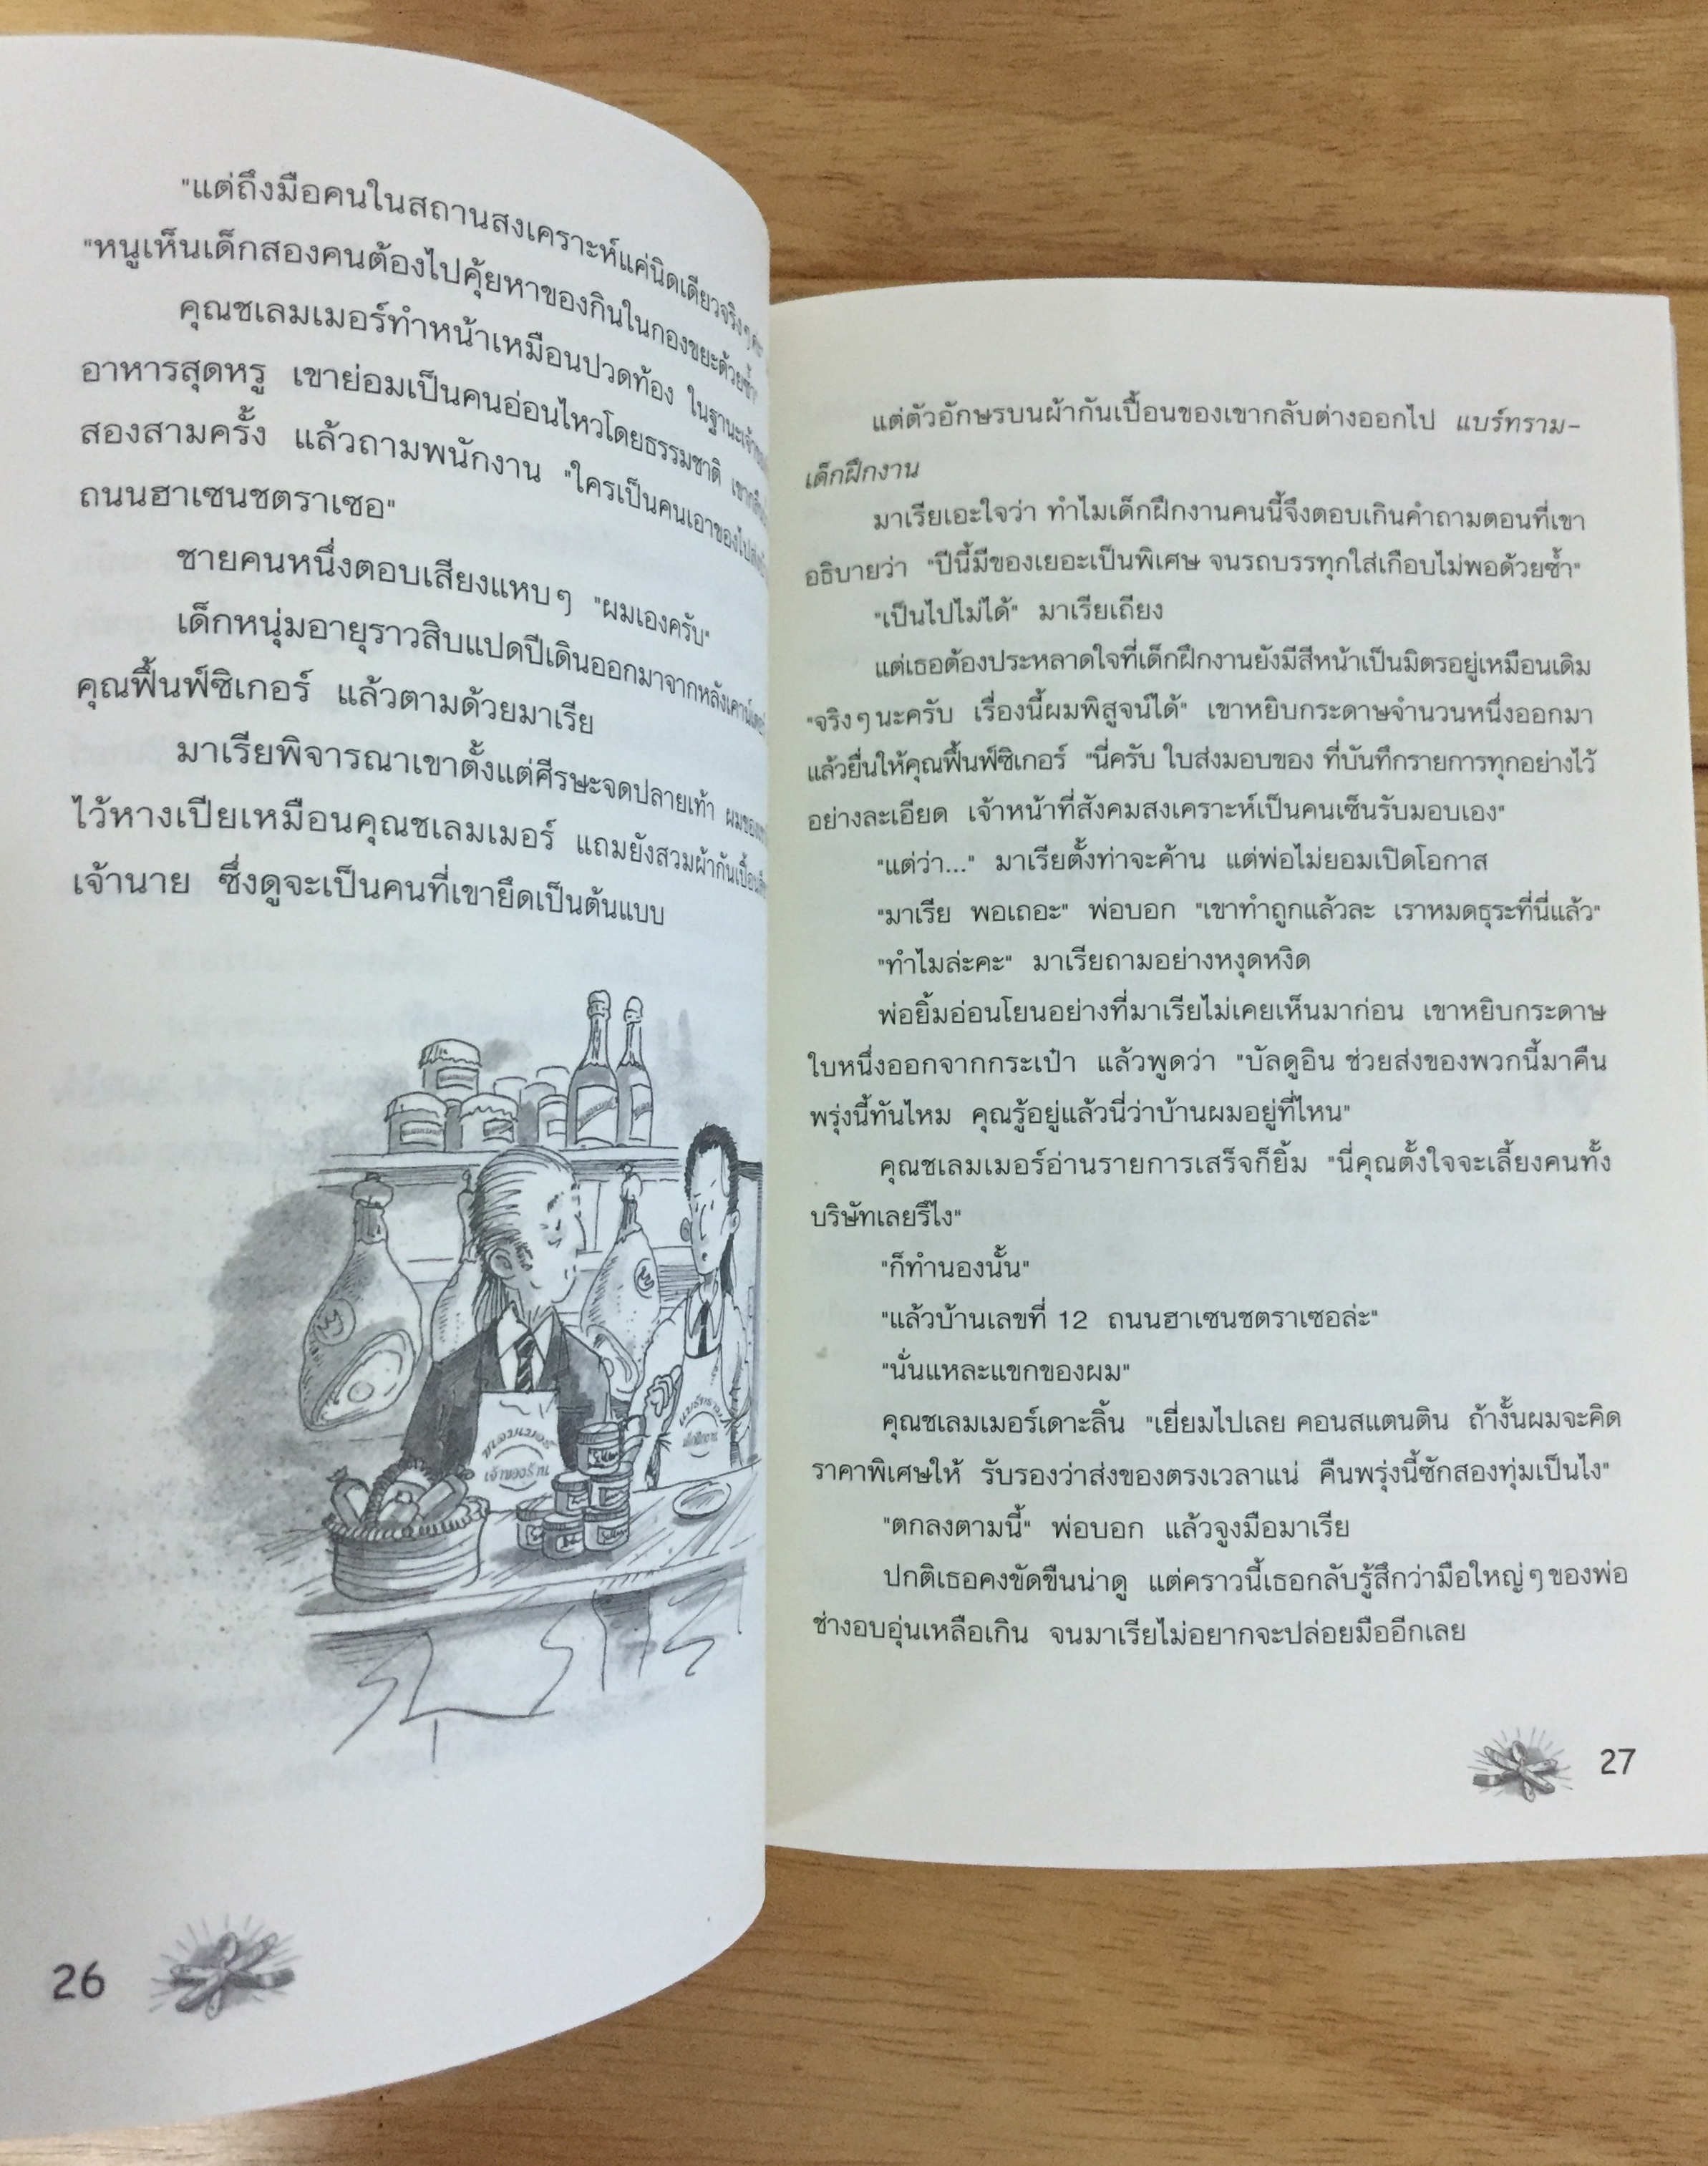 "แต่ถึงมือคนในสถานสงเคราะห์แค่นิดเดียวจริงๆค่ะ
"หนูเห็นเด็กสองคนต้องไปคุ้ยหาของกินในกองขยะด้วยซ้ำ"
คุณชเลมเมอร์ทำหน้าเหมือนปวดท้อง ในฐานะ
อาหารสุดหรู เขาย่อมเป็นคนอ่อนไหวโดยธรรมชาติ
สองสามครั้ง แล้วถามพนักงาน "ใครเป็นคนเอาของไป
ถนนฮาเซนชตราเซอ"
ชายคนหนึ่งตอบเสียงแหบๆ "ผมเองครับ"
เด็กหนุ่มอายุราวสิบแปดปีเดินออกมาจากหลังเคาน์เตอร์
คุณฟื้นฟ์ซิเกอร์ แล้วตามด้วยมาเรีย
มาเรียพิจารณาเขาตั้งแต่ศีรษะจดปลายเท้า
ไว้หางเปียเหมือนคุณชเลมเมอร์ แถมยังสวมผ้ากันเปื้อน
เจ้านาย ซึ่งดูจะเป็นคนที่เขายึดเป็นต้นแบบ
ชเลมเมอร์
เจ้าของร้าน
แบร์ทราม
เด็กฝึกงาน
26
แต่ตัวอักษรบนผ้ากันเปื้อนของเขากลับต่างออกไป แบร์ทราม-
เด็กฝึกงาน
มาเรียเอะใจว่า ทำไมเด็กฝึกงานคนนี้จึงตอบเกินคำถามตอนที่เขา
อธิบายว่า "ปีนี้มีของเยอะเป็นพิเศษ จนรถบรรทุกใส่เกือบไม่พอด้วยซ้ำ"
"เป็นไปไม่ได้" มาเรียเถียง
แต่เธอต้องประหลาดใจที่เด็กฝึกงานยังมีสีหน้าเป็นมิตรอยู่เหมือนเดิม
"จริงๆนะครับ เรื่องนี้ผมพิสูจน์ได้" เขาหยิบกระดาษจำนวนหนึ่งออกมา
แล้วยื่นให้คุณฟื้นฟ์ซิเกอร์ "นี่ครับ ใบส่งมอบของ ที่บันทึกรายการทุกอย่างไว้
อย่างละเอียด เจ้าหน้าที่สังคมสงเคราะห์เป็นคนเซ็นรับมอบเอง"
"แต่ว่า..." มาเรียตั้งท่าจะค้าน แต่พ่อไม่ยอมเปิดโอกาส
"มาเรีย พอเถอะ" พ่อบอก "เขาทำถูกแล้วละ เราหมดธุระที่นี่แล้ว"
"ทำไมล่ะคะ" มาเรียถามอย่างหงุดหงิด
พ่อยิ้มอ่อนโยนอย่างที่มาเรียไม่เคยเห็นมาก่อน เขาหยิบกระดาษ
ใบหนึ่งออกจากกระเป๋า แล้วพูดว่า "บัลดูอิน ช่วยส่งของพวกนี้มาคืน
พรุ่งนี้ทันไหม คุณรู้อยู่แล้วนี่ว่าบ้านผมอยู่ที่ไหน"
คุณชเลมเมอร์อ่านรายการเสร็จก็ยิ้ม "นี่คุณตั้งใจจะเลี้ยงคนทั้ง
บริษัทเลยรึไง"
"ก็ทำนองนั้น"
"แล้วบ้านเลขที่ 12 ถนนฮาเซนชตราเซอล่ะ"
"นั่นแหละแขกของผม"
คุณชเลมเมอร์เดาะลิ้น "เยี่ยมไปเลย คอนสแตนติน ถ้างั้นผมจะคิด
ราคาพิเศษให้ รับรองว่าส่งของตรงเวลาแน่ คืนพรุ่งนี้ซักสองทุ่มเป็นไง"
"ตกลงตามนี้" พ่อบอก แล้วจูงมือมาเรีย
ปกติเธอคงขัดขืนน่าดู แต่คราวนี้เธอกลับรู้สึกว่ามือใหญ่ๆของพ่อ
ช่างอบอุ่นเหลือเกิน จนมาเรียไม่อยากจะปล่อยมืออีกเลย
27